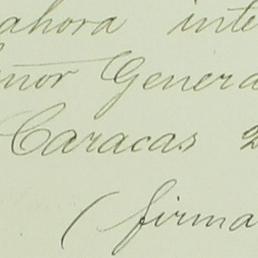 ahora inte
ñor Genera
Caracas 2
(firma